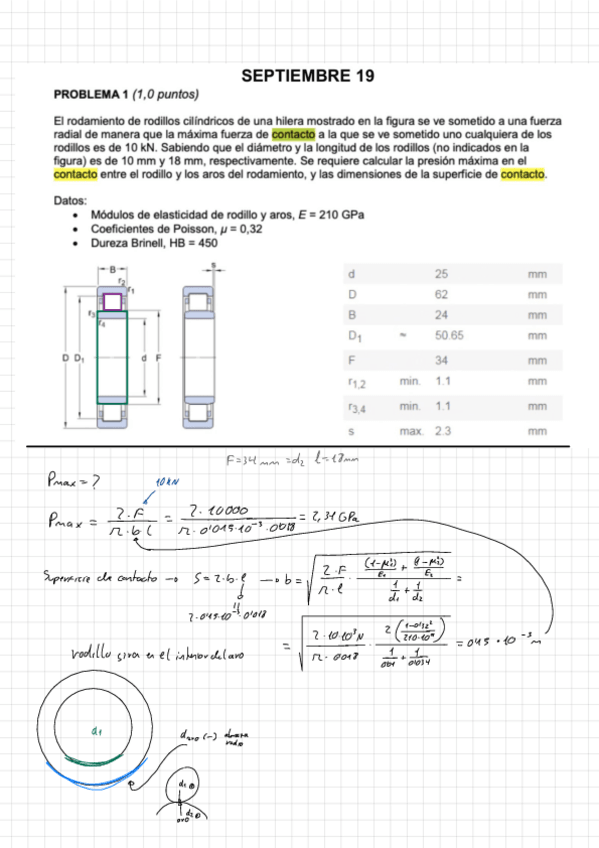 SEPTIEMBRE 19
PROBLEMA 1 (1,0 puntos)
El rodamiento de rodillos cilíndricos de una hilera mostrado en la figura se ve sometido a una fuerza
radial de manera que la máxima fuerza de contacto a la que se ve sometido uno cualquiera de los
rodillos es de 10 kN. Sabiendo que el diámetro y la longitud de los rodillos (no indicados en la
figura) es de 10 mm y 18 mm, respectivamente. Se requiere calcular la presión máxima en el
contacto entre el rodillo y los aros del rodamiento, y las dimensiones de la superficie de contacto.
Datos:
• Módulos de elasticidad de rodillo y aros, E = 210 GPa
• Coeficientes de Poisson, μ = 0,32
• Dureza Brinell, HB = 450
B
r2
r1
r3
r4
D D1 d F
s
d 25 mm
D 62 mm
B 24 mm
D1 ≈ 50.65 mm
F 34 mm
r1,2 min. 1.1 mm
r3,4 min. 1.1 mm
s max. 2.3 mm
F=34 mm =d2 l=18mm
Pmax = ?
10 kN
Pmax = 2·F / π·b·l = 2·10000 / π·0'045·10^-3·0'018 = 2,31 GPa
Superficie de contacto → S=2·b·l → b = √(2·F / π·l · ((1-μ1²)/E1 + (1-μ2²)/E2) / (1/d1 + 1/d2)) =
= √(2·10·10³N / π·0'018 · 2((1-0'32²)/210·10^9) / (1/0'01 + 1/0'034)) = 0'45·10^-3 m
rodillo gira en el interior del aro
d1
daro (-)
d1 ⊕
d2 ⊕
aro